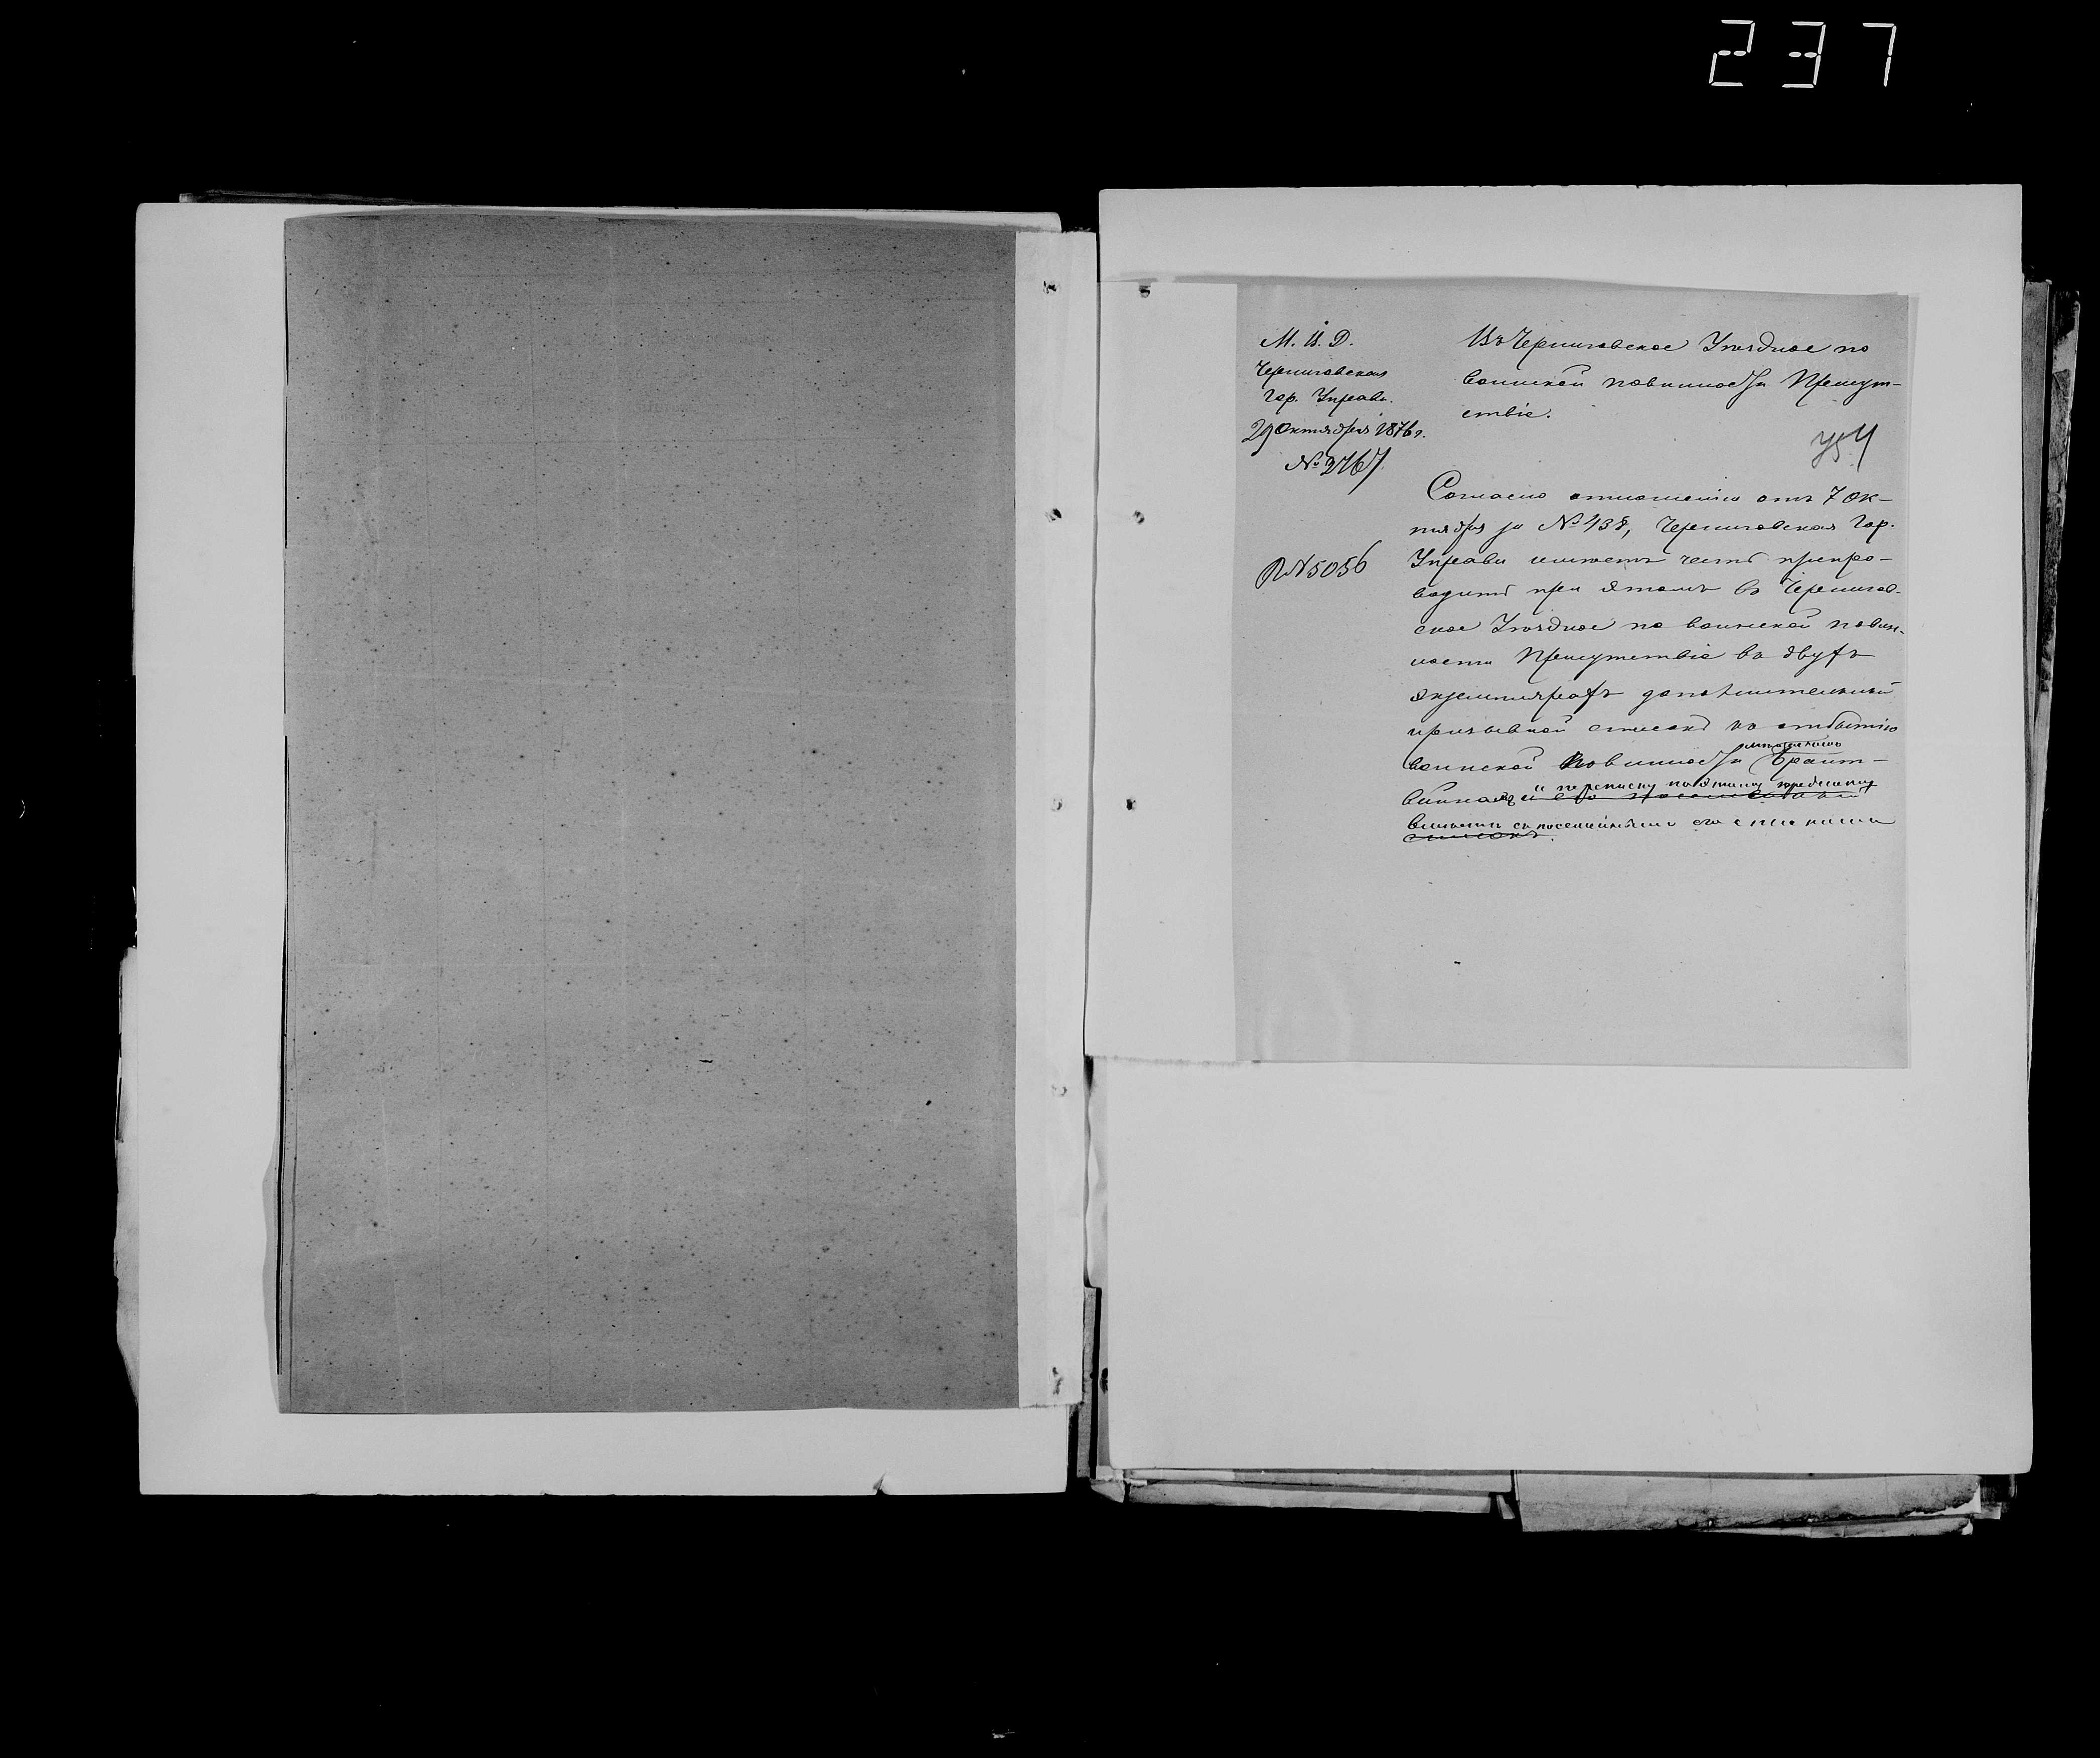 237
М. В. Д.
Черниговская
Гор. Управа.
29 Октября 1876 г.
№ 2767.
№ 5056
Въ Черниговское Уѣздное по
воинской повинности Присут-
ствіе.
Согласно отношенію отъ 7 Ок-
тября за № 438, Черниговская Гор.
Управа имѣетъ честь препро-
водить при этомъ въ Чернигов-
ское Уѣздное по воинской повин-
ности Присутствіе въ двухъ
экземплярахъ дополнительный
призывной списокъ къ отбытію
воинской повинности Браит-
и переписку по этому предмету
вмѣстѣ съ посемейными его списками
списокъ.